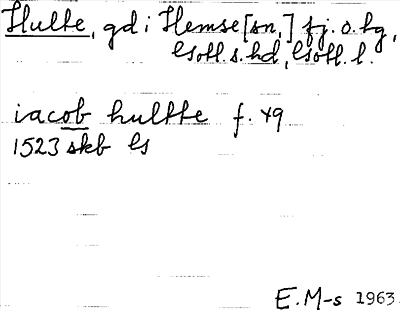 Hulte, gd i Hemse [sn,] fj. o. hg,
Gotl. s. hd, Gotl. l.
iacob hultte f. 49
1523 skb Gs
E.M-s 1963